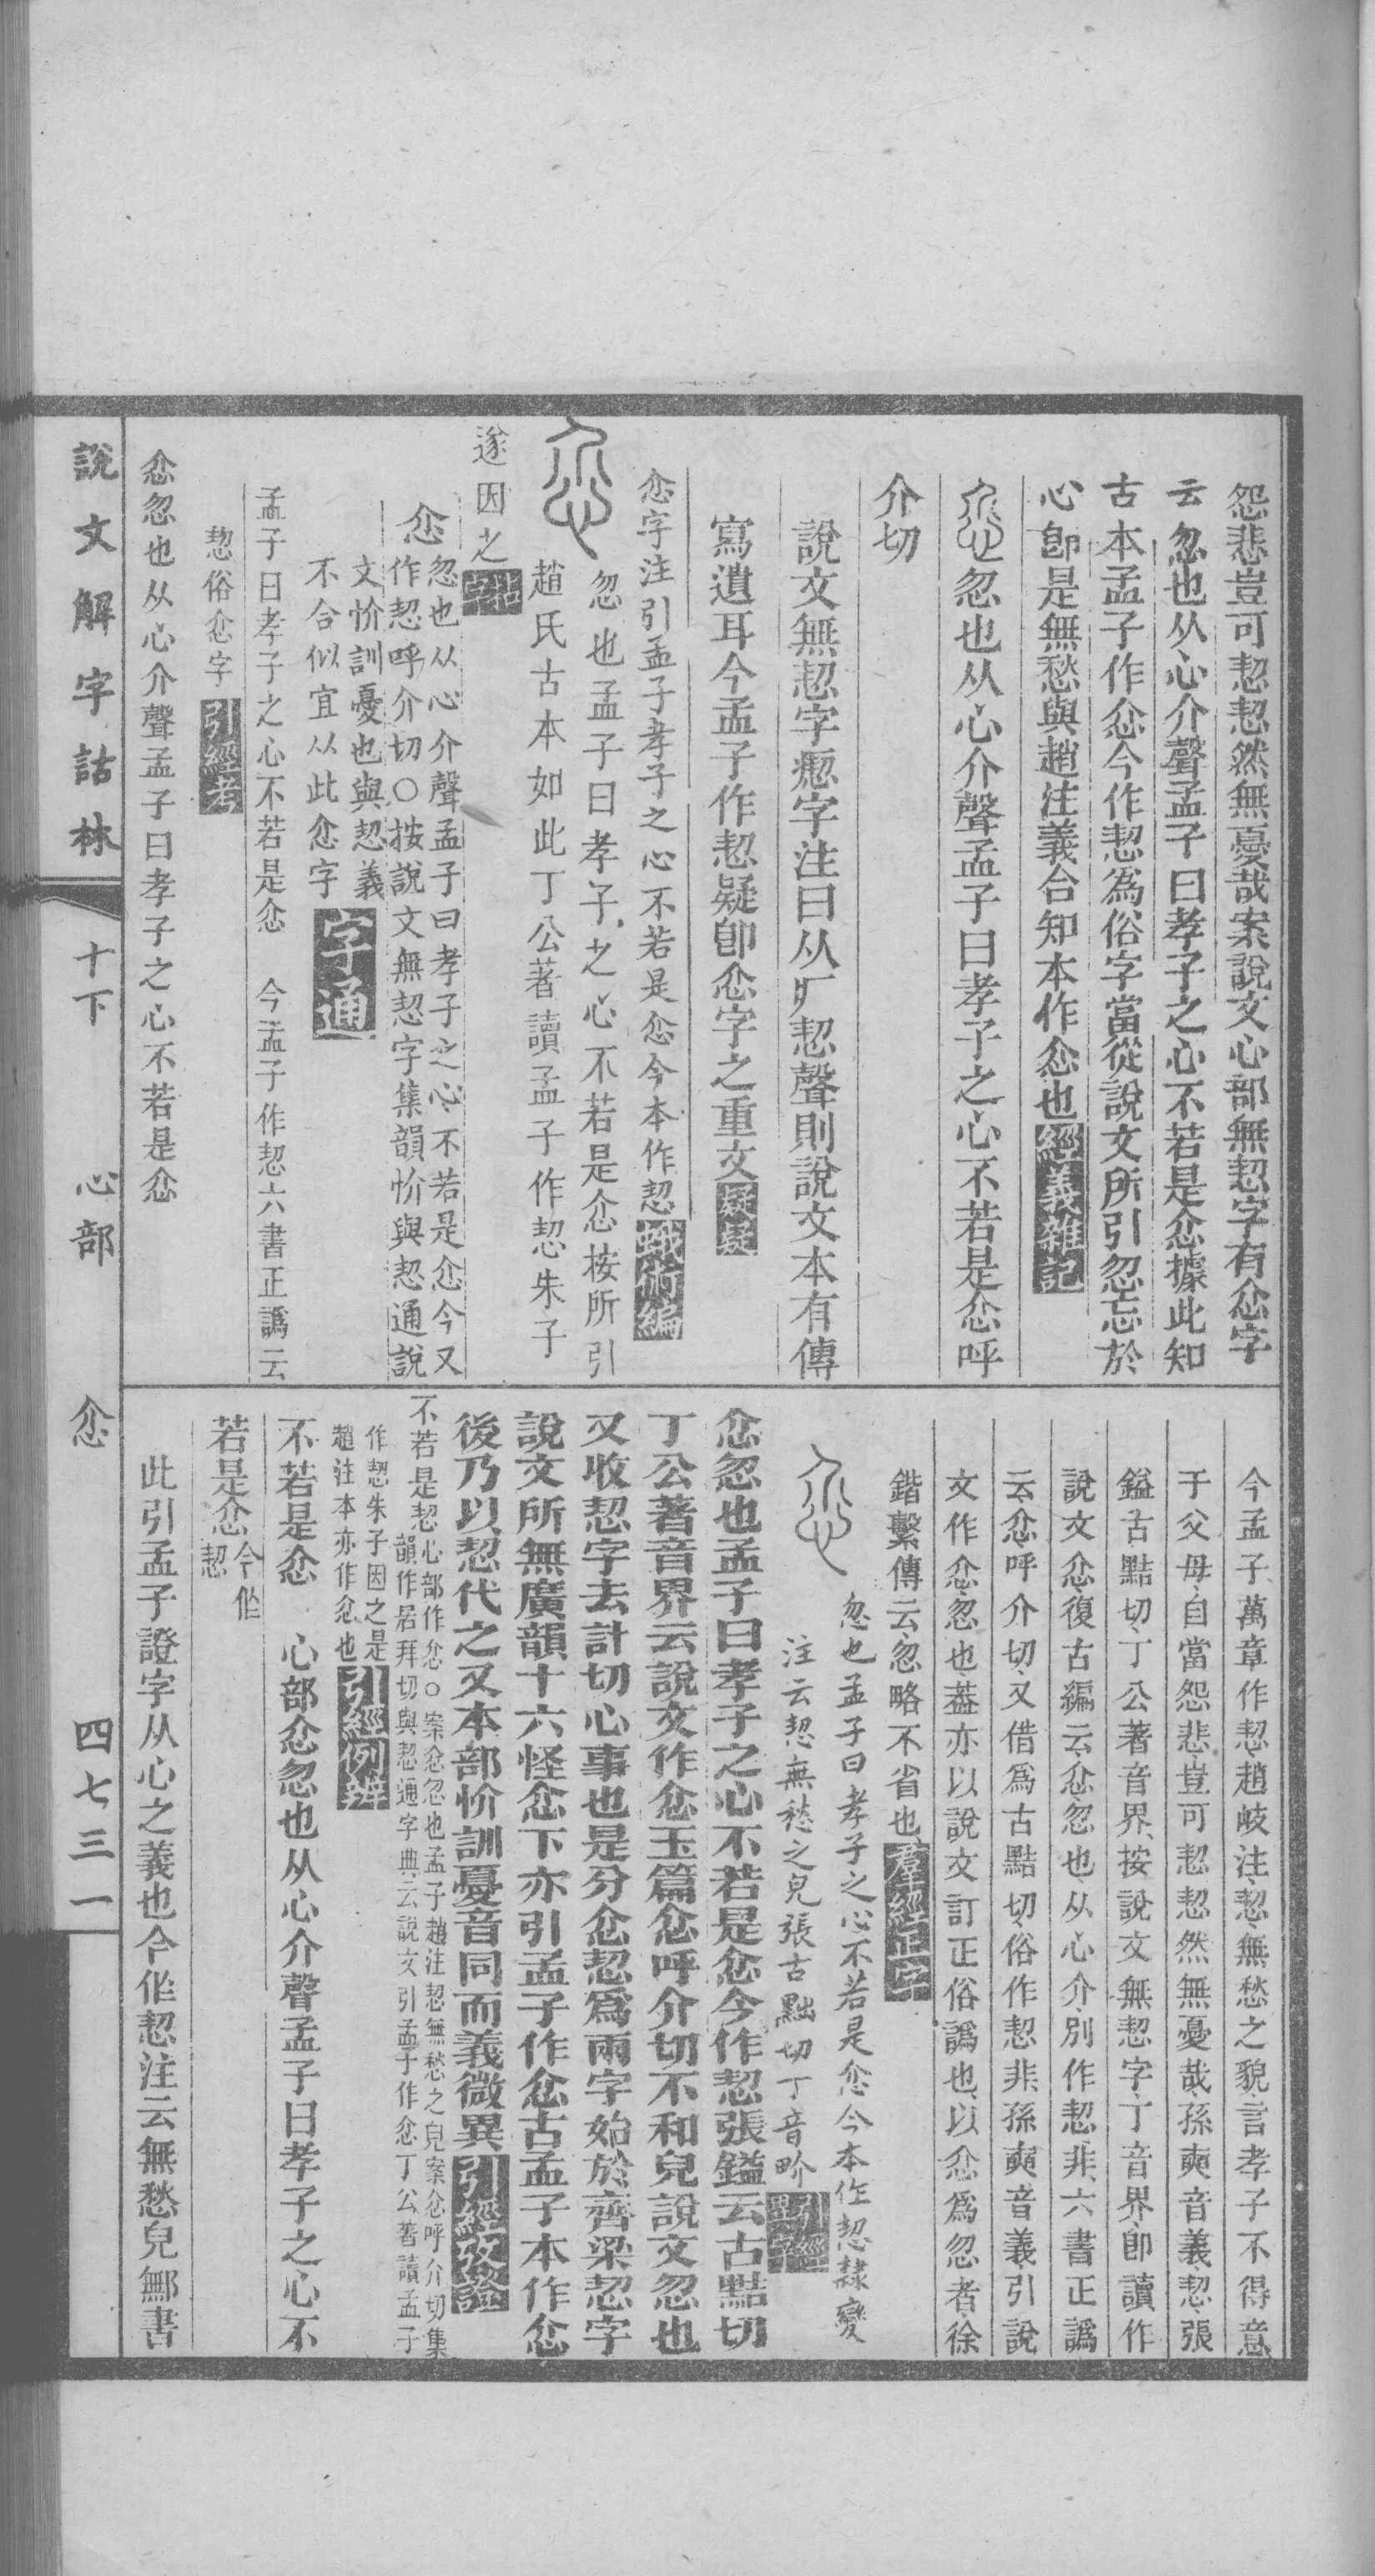 怨悲豈可恝恝然無憂哉案說文心部無恝字有忿字
云忽也从心介聲孟子曰孝子之心不若是忿據此知
古本孟子作忿今作恝爲俗字當從說文所引忽忘於
心卽是無愁與趙注義合知本作忿也經義雜記
忽也从心介聲孟子曰孝子之心不若是忿呼
介切
說文無恝字瘛字注曰从疒恝聲則說文本有傳
寫遺耳今孟子作恝疑卽忿字之重文疑疑
忿字注引孟子孝子之心不若是忿今本作恝蛾術編
忽也孟子曰孝子之心不若是忿按所引
趙氏古本如此丁公著讀孟子作恝朱子
遂因之
忿忽也从心介聲孟子曰孝子之心不若是忿今又
作恝呼介切○按說文無恝字集韻忦與恝通說
文忦訓憂也與恝義
不合似宜从此忿字字通
孟子曰孝子之心不若是忿 今孟子作恝六書正譌云
恝俗忿字引經考
忿忽也从心介聲孟子曰孝子之心不若是忿
今孟子萬章作恝趙岐注恝無愁之貌言孝子不得意
于父母自當怨悲豈可恝恝然無憂哉孫奭音義恝張
鎰古黠切丁公著音界按說文無恝字丁音界卽讀作
說文忿復古編云忿忽也从心介別作恝非六書正譌
云忿呼介切又借爲古黠切俗作恝非孫奭音義引說
文作忿忽也葢亦以說文訂正俗譌也以忿爲忽者徐
鍇繫傳云忽略不省也羣經正字
忽也孟子曰孝子之心不若是忿今本作恝隸變
注云恝無愁之皃張古黠切丁音畍
忿忽也孟子曰孝子之心不若是忿今作恝張鎰云古黠切
丁公著音界云說文作忿玉篇忿呼介切不和皃說文忽也
又收恝字去計切心事也是分忿恝爲兩字始於齊梁恝字
說文所無廣韻十六怪忿下亦引孟子作忿古孟子本作忿
後乃以恝代之又本部忦訓憂音同而義微異引經攷證
不若是恝心部作忿○案忿忽也孟子趙注恝無愁之皃案忿呼介切集
韻作居拜切與恝通字典云説文引孟子作忿丁公著讀孟子
作恝朱子因之是
趙注本亦作忿也引經例辨
不若是忿 心部忿忽也从心介聲孟子曰孝子之心不
若是忿今作恝
此引孟子證字从心之義也今作恝注云無愁皃鄦書
說文解字詁林 十下 心部 忿 四七三一